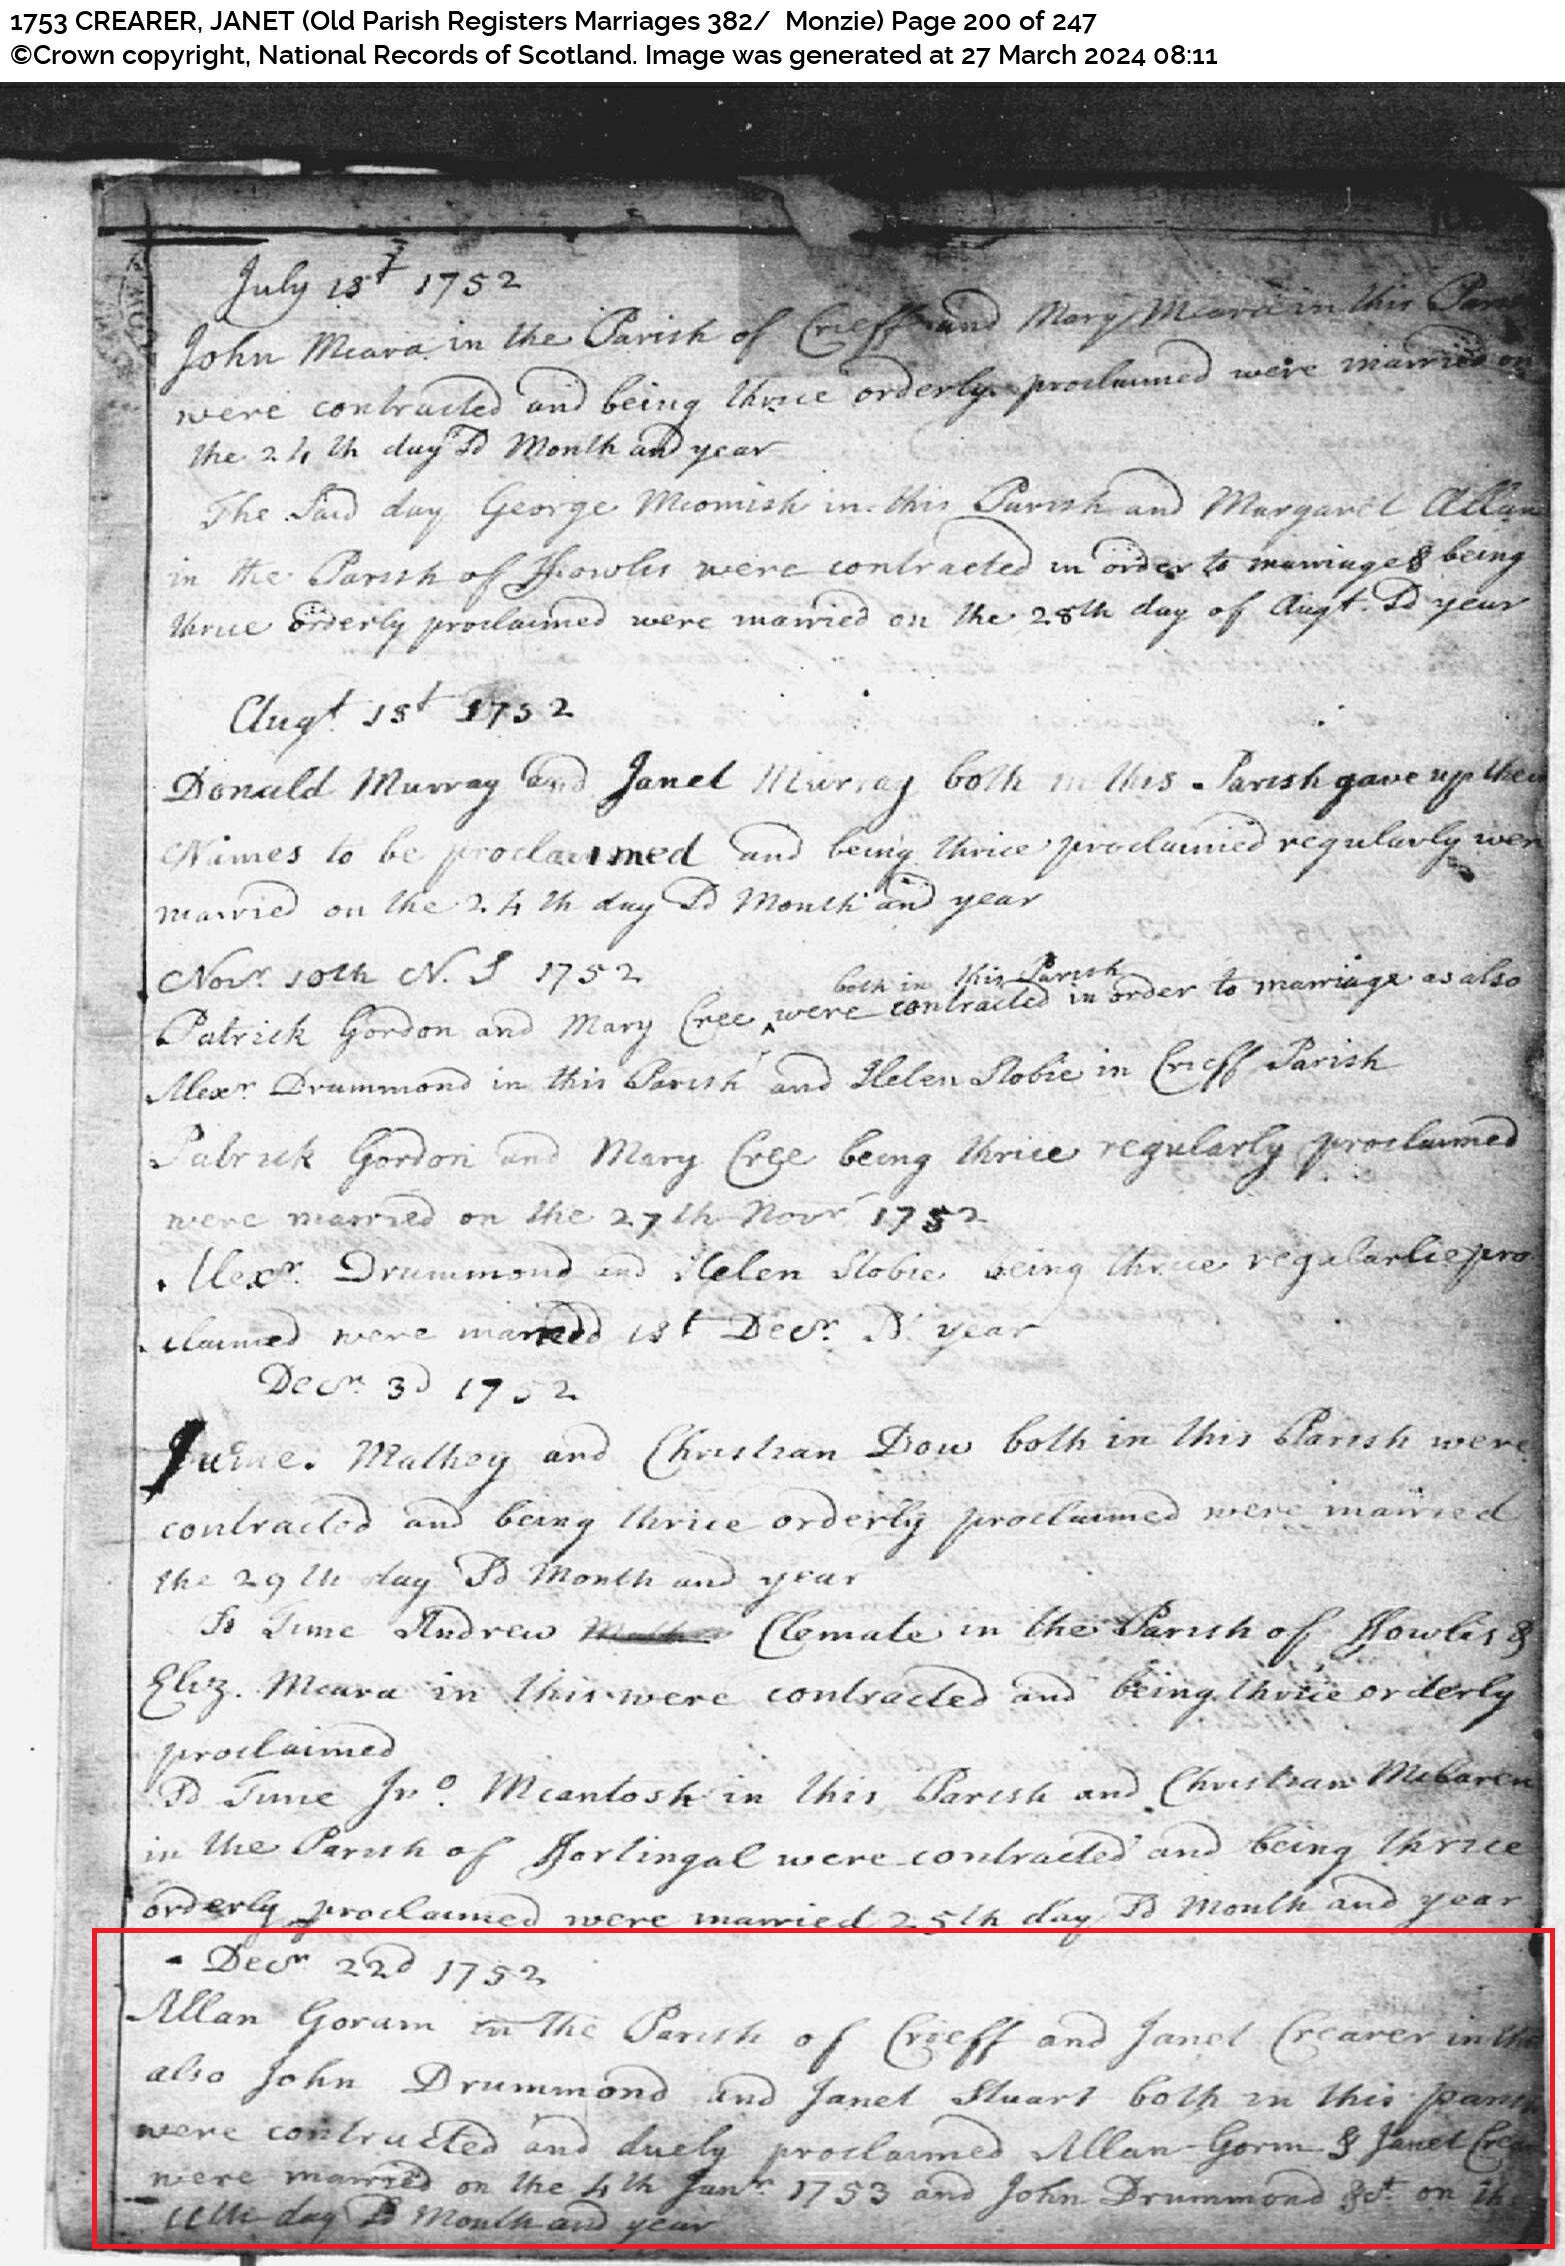 1753 CREARER, JANET (Old Parish Registers Marriages 382/ Monzie) Page 200 of 247
©Crown copyright, National Records of Scotland. Image was generated at 27 March 2024 08:11
July 1st 1752
John Mcara in the Parish of Crieff and Mary Mcara in this Parish
were contracted and being thrice orderly proclaimed were married on
the 24th day Sd Month and year
The Said day George Mcomish in this Parish and Margaret Allan
in the Parish of Fowlis were contracted in order to marriage & being
thrice orderly proclaimed were married on the 28th day of Augt. Sd year
Augt 1st 1752
Donald Murray and Janet Murray both in this Parish gave up their
Names to be proclaimed and being thrice proclaimed regularly were
married on the 24th day Sd Month and year
Novr 10th N. S 1752
both in this Parish
Patrick Gordon and Mary Cree ^ were contracted in order to marriage as also
Alexr Drummond in this Parish and Helen Stobie in Crieff Parish
Patrick Gordon and Mary Cree being thrice regularly proclaimed
were married on the 27th Novr 1752
Alexr. Drummond and Helen Stobie being thrice regularlie pro
claimed were married 1st Decr. Sd year
Decr 3d 1752
Mathey and Christian Dow both in this Parish were
contracted and being thrice orderly proclaimed were married
the 29th day Sd Month and year
Sd Time Andrew Clemate in the Parish of Fowlis &
Eliz. Mcara in this were contracted and being thrice orderly
proclaimed
Sd Time Jno. Mcantosh in this Parish and Christian Mclaren
in the Parish of Fortingal were contracted and being thrice
orderly proclaimed were married 25th day Sd Month and year
Decr 22d 1752
Allan Goram in the Parish of Crieff and Janet Crearer in this
also John Drummond and Janet Stuart both in this parish
were contracted and duely proclaimed Allan Gorm & Janet Crearer
were married on the 4th Janr. 1753 and John Drummond &ct. on the
11th day Sd Month and year